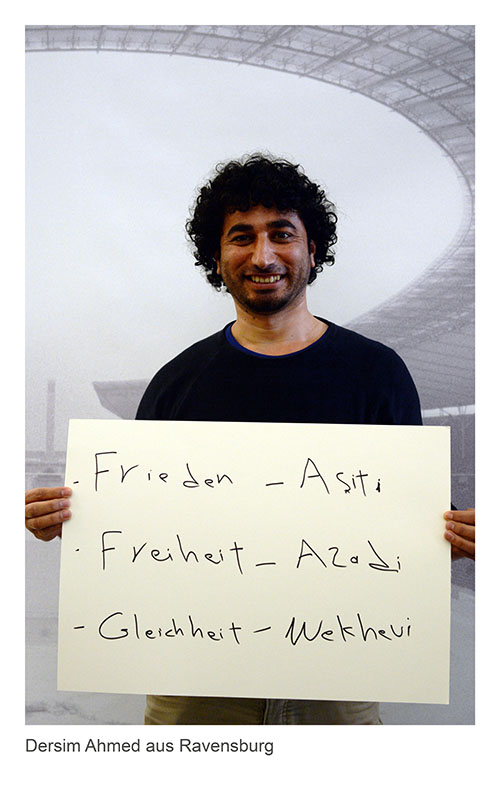 - Frieden - Aşiti
- Freiheit - Azadi
- Gleichheit - Wekhevi
Dersim Ahmed aus Ravensburg